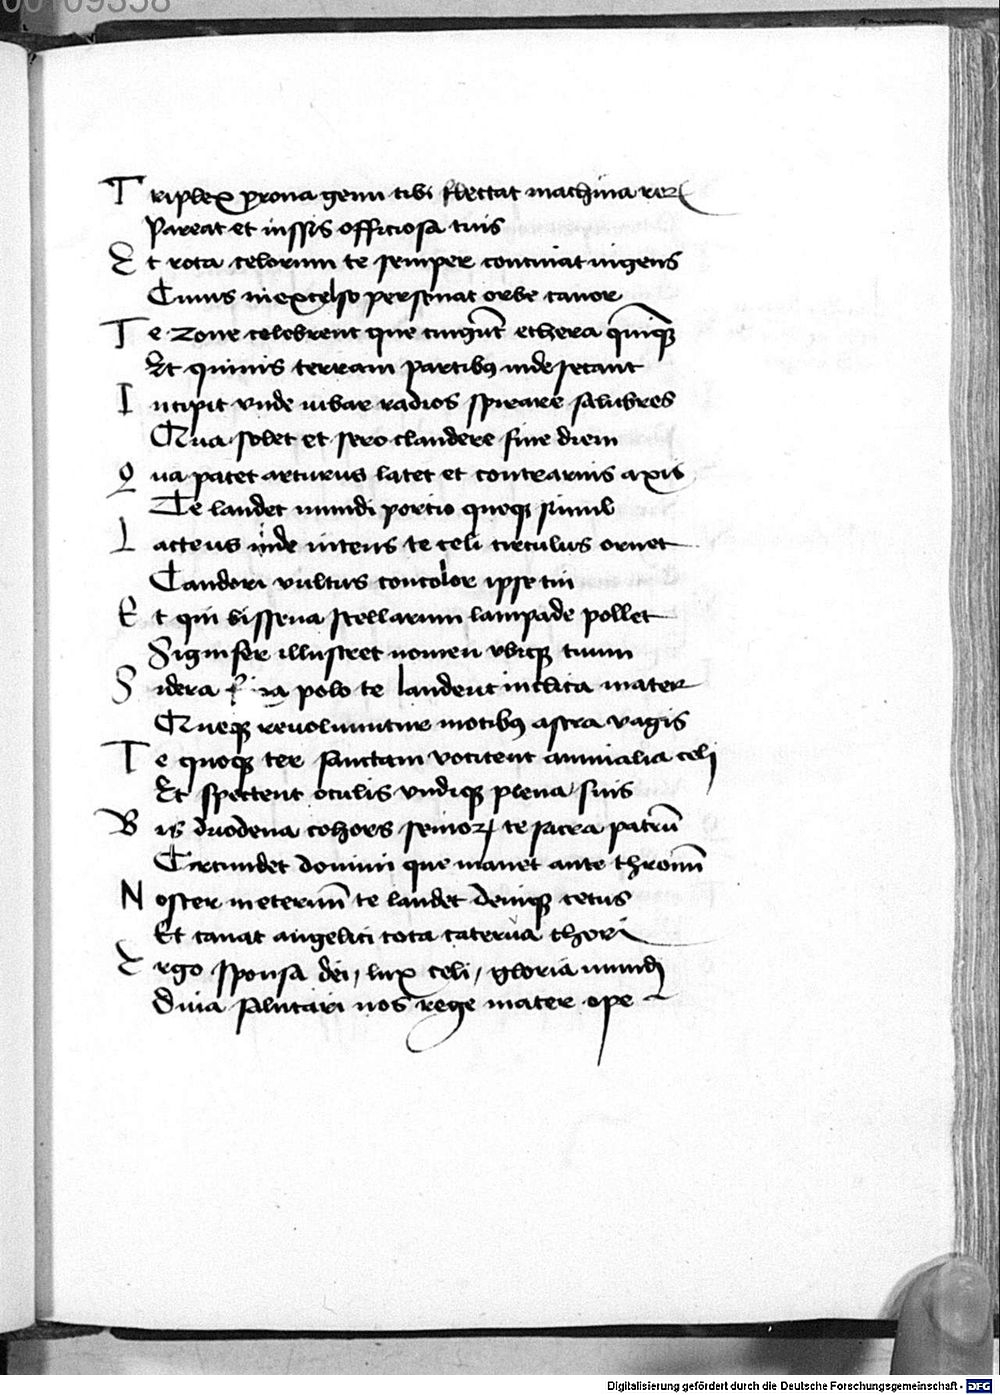 00109358
Triplex prona genu tibi flectat machina rerꝝ
Pareat et iussis officiosa tuis
Et rota celorum te semper continuat ingens
Cuius in excelso personat orbe canor
Te zone celebrent que cingūt ethera quīqꝫ
Et quinis terram partibꝰ inde secant
Incipit vnde iubar radios spirare salubres
Qua solet et sero claudere fine diem
Qua patet arcturus latet et contrarius axis
Te laudet mundi portio queqꝫ simul
Lacteus inde nitens te celi circulus ornet
Candori vultus concolor ipse tui
Et qui bissena stellarum lampade pollet
Signifer illustret nomen vbiqꝫ tuum
Sidera fixa polo te laudent inclita mater
Queqꝫ reuoluuntur motibꝰ astra vagis
Te quoqꝫ ter sanctam vocitent animalia celi
Et spectent oculis vndiqꝫ plena suis
Bis duodena cohors senioꝝ te sacra patrū
Circundet domini que manet ante thronū
Noster in eternū te laudet deniqꝫ cetus
Et canat angelici tota caterua chori
Ergo sponsa dei, lux celi, gloria mundi
Diua salutari nos rege mater ope
Digitalisierung gefördert durch die Deutsche Forschungsgemeinschaft - DFG